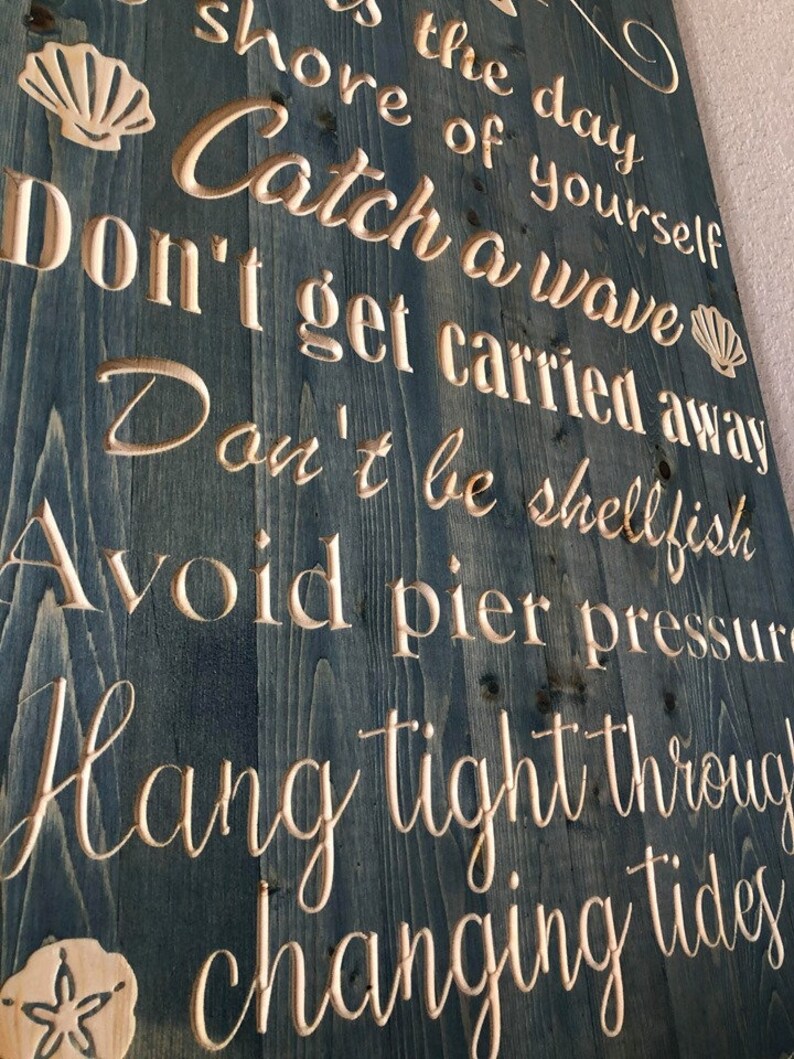 the day
shore of yourself
Catch a wave
Don't get carried away
Don't be shellfish
Avoid pier pressure
Hang tight through
changing tides